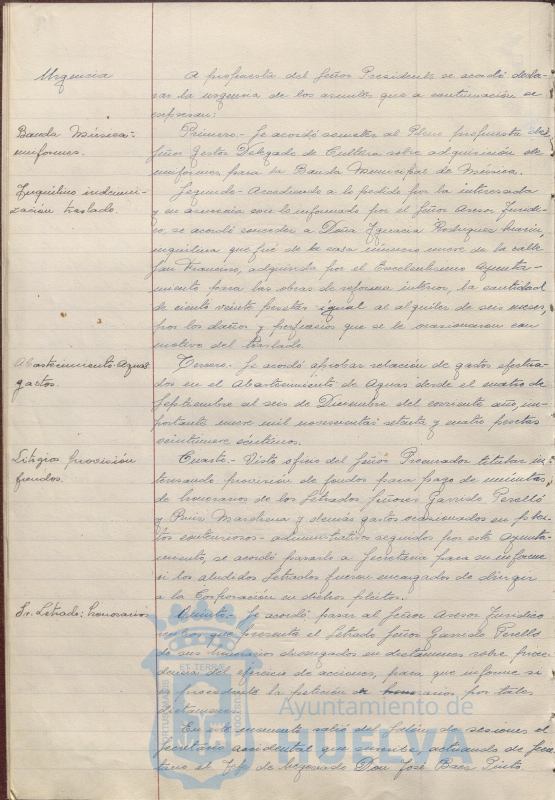 Urgencia
A propuesta del Señor Presidente se acordó decla-
rar la urgencia de los asuntos que a continuación se
expresan:
Banda Música:
uniformes.
Primero.- Se acordó someter al Pleno propuesta del
Señor Gestor Delegado de Cultura sobre adquisición de
uniformes para la Banda Municipal de Música.
Inquilino indemni-
zación traslado.
Segundo.- Accediendo a lo pedido por la interesada
y en armonía con lo informado por el Señor Asesor Jurídi-
co, se acordó conceder a Doña Ignacia Rodríguez
inquilina que fué de la casa número nueve de la calle
San Francisco, adquirida por el Excelentísimo Ayunta-
miento para las obras de reforma interior, la cantidad
de ciento veinte pesetas igual al alquiler de seis meses,
por los daños y perjuicios que se le ocasionaron con
motivo del traslado.
Abastecimiento Aguas
gastos.
Tercero.- Se acordó aprobar relación de gastos efectua-
dos en el Abastecimiento de Aguas desde el cuatro de
Septiembre al seis de Diciembre del corriente año, im-
portante nueve mil novecientas setenta y cuatro pesetas
veintinueve céntimos.
Litigios provisión
fondos.
Cuarto.- Visto oficio del Señor Procurador titular in-
teresando provisión de fondos para pago de minutas
de honorarios de los Letrados Señores Garrido Perelló
y Ruiz Marchena y demás gastos ocasionados en plei-
tos contencioso-administrativos seguidos por este Ayunta-
miento, se acordó pasarlo a Secretaría para su informe
si los aludidos Letrados fueron encargados de dirigir
a la Corporación en dichos pleitos.
Sr. Letrado: honorarios
Quinto.- Se acordó pasar al Señor Asesor Jurídico
que presenta el Letrado Señor Garrido Perelló
de sus honorarios devengados en dictámenes sobre proce-
dencia del ejercicio de acciones, para que informe si
es procedente la petición de honorarios, por tales
dictámenes.
En este momento salió del Salón de sesiones el
Secretario accidental que suscribe, actuando de Secre-
tario el Jefe de Negociado Don José Baez Pinto.
Ayuntamiento de
HUELVA